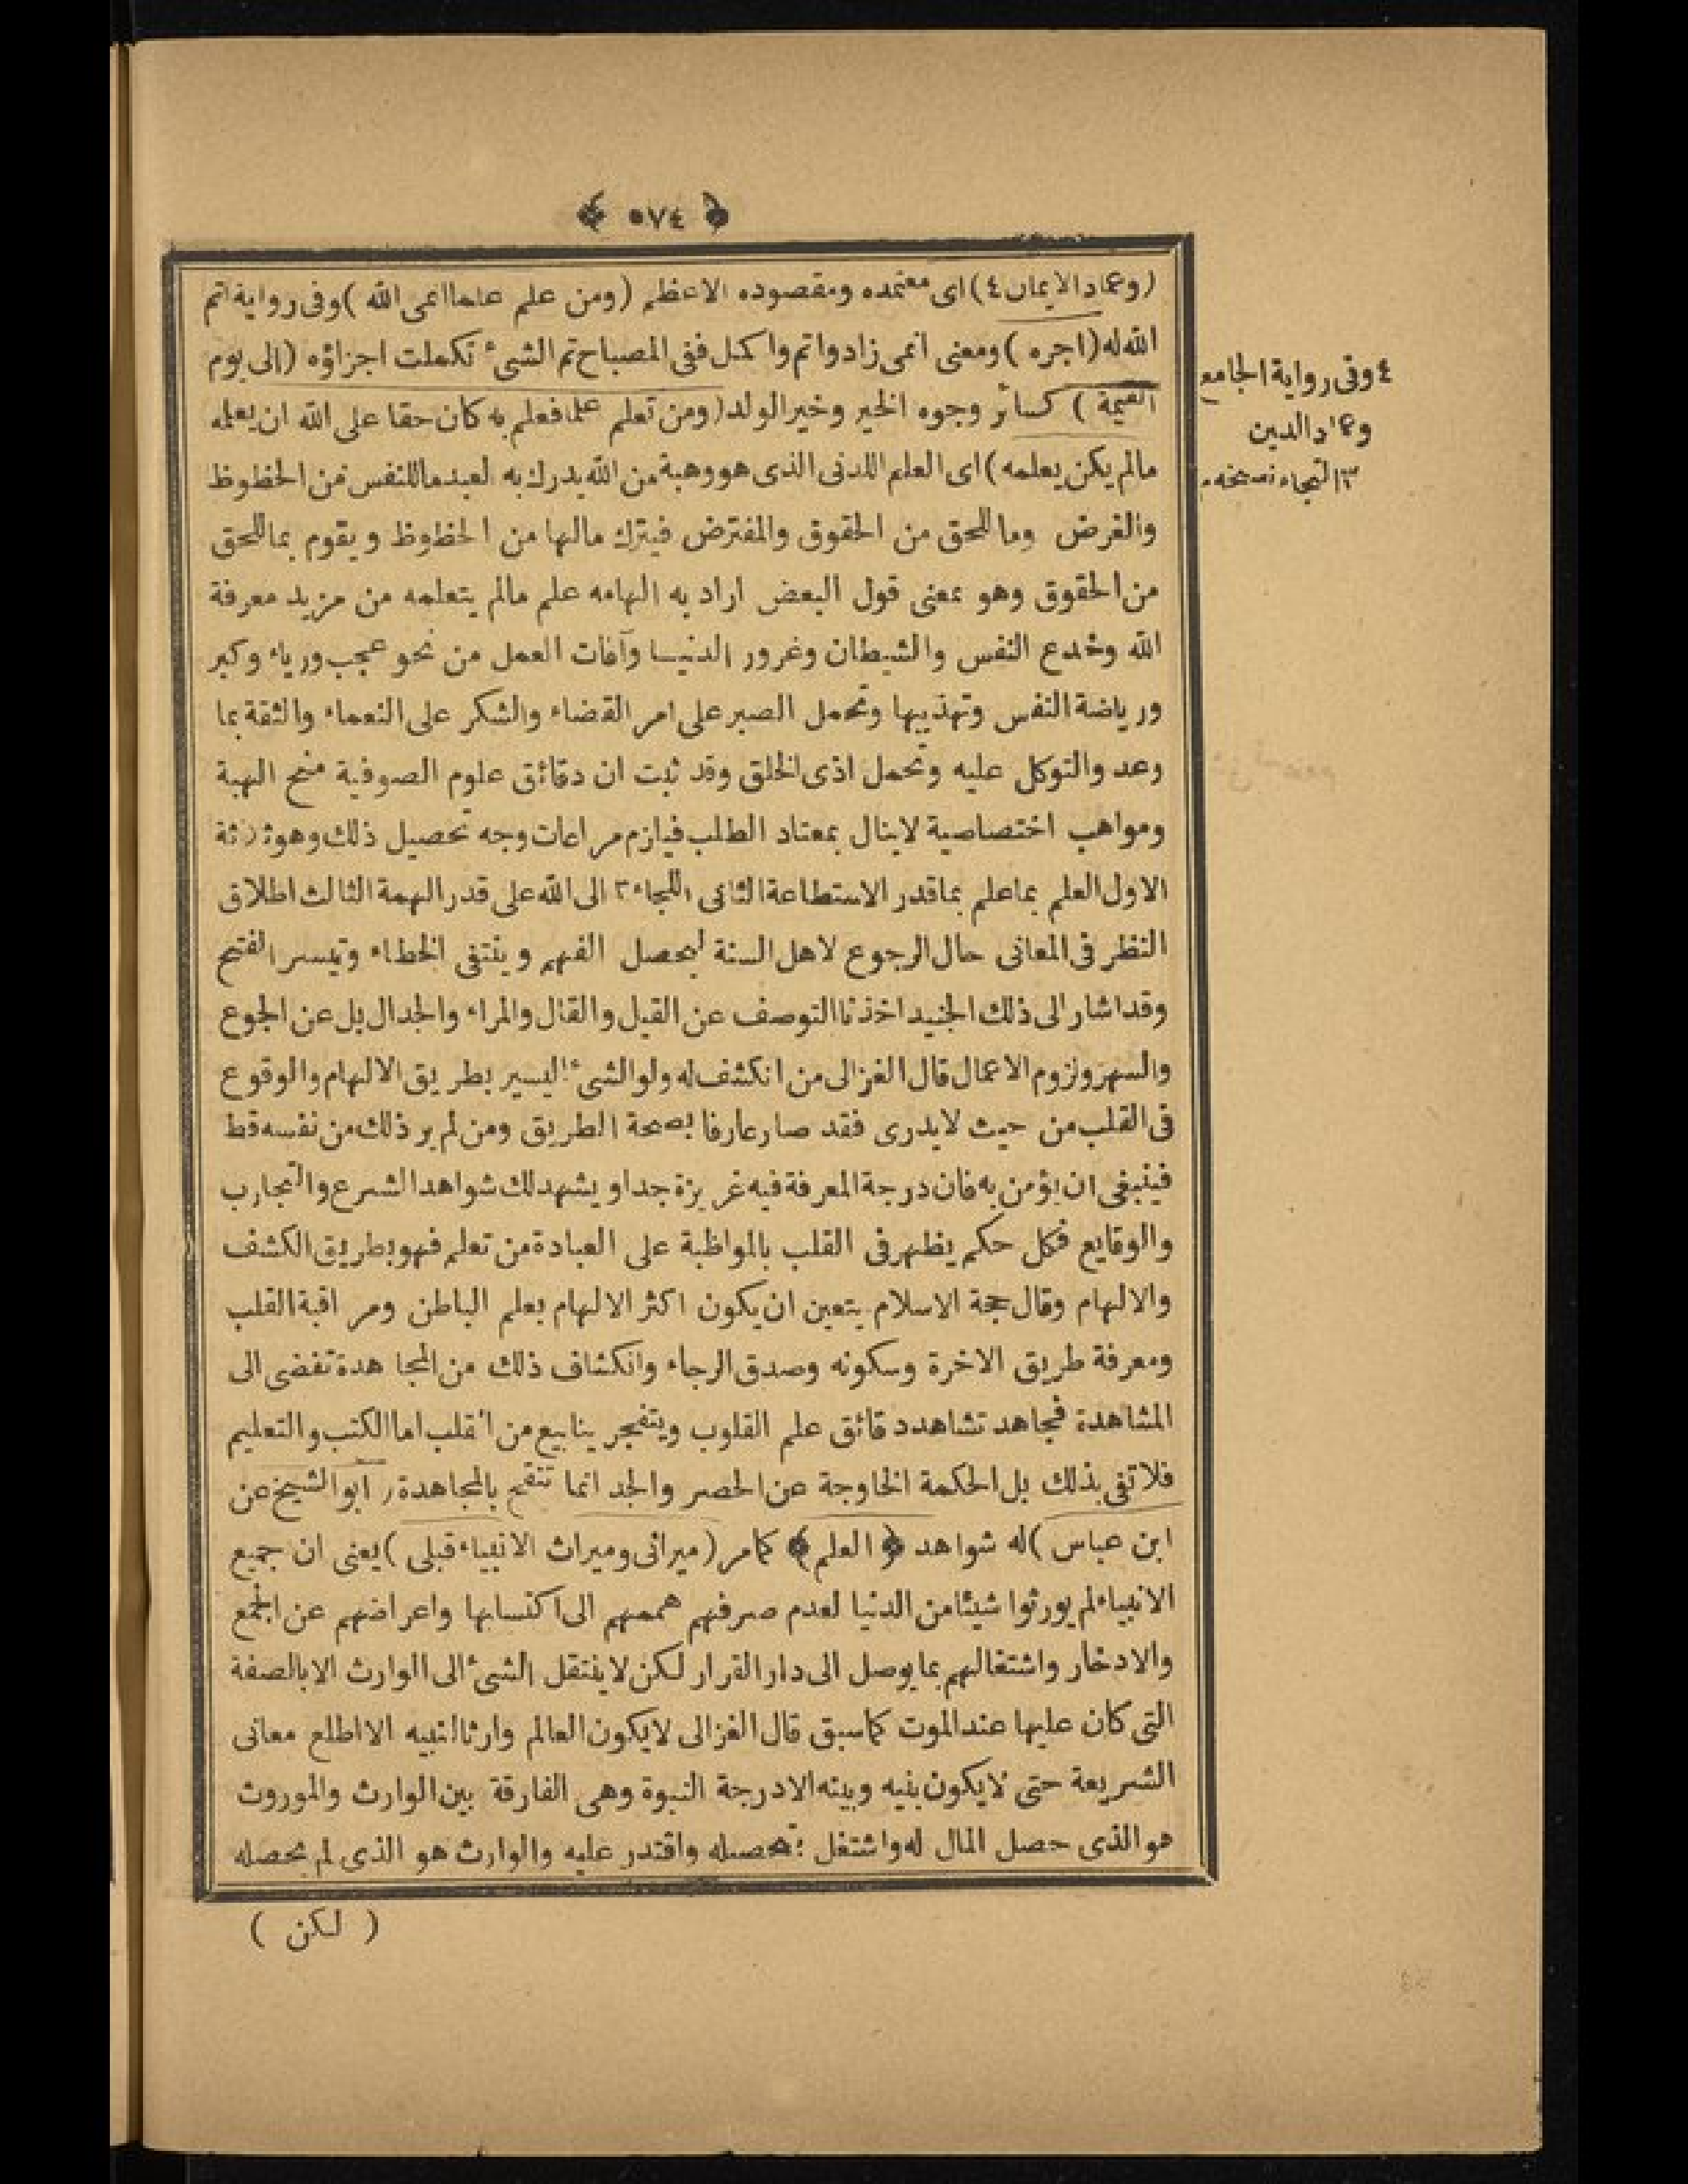 ﴿ ٥٧٤ ﴾
(وعماد الايمان ٤) اى معتمده ومقصوده الاعظم (ومن علم علما انمى الله) وفى رواية اتم
الله له (اجره) ومعنى انمى زاد واتم واكمل ففى المصباح تم الشئ تكملت اجزاؤه (الى يوم
القيمة) كسائر وجوه الخير وخير الولد (ومن تعلم علما فعلم به كان حقا على الله ان يعلمه
مالم يكن يعلمه) اى العلم اللدنى الذى هو وهبة من الله يدرك به لعبد ما للنفس من الحظوظ
والغرض وما للحق من الحقوق والمفترض فيترك مالها من الحظوظ ويقوم بما للحق
من الحقوق وهو بمعنى قول البعض اراد به الهامه علم مالم يتعلمه من مزيد معرفة
الله وخدع النفس والشيطان وغرور الدنيا وآفات العمل من نحو عجب ورياء وكبر
ورياضة النفس وتهذيبها وتحمل الصبر على امر القضاء والشكر على النعماء والثقة بما
وعد والتوكل عليه وتحمل اذى الخلق وقد ثبت ان دقائق علوم الصوفية منح الهية
ومواهب اختصاصية لاينال بمعتاد الطلب فيلزم مراعات وجه تحصيل ذلك وهو ثلاثة
الاول العلم بما علم بما قدر الاستطاعة الثانى اللجاء ٣ الى الله على قدر الهمة الثالث اطلاق
النظر فى المعانى حال الرجوع لاهل السنة ليحصل الفهم وينتفى الخطاء وتيسر الفتح
وقد اشار الى ذلك الجنيد اخذنا التوصف عن القيل والقال والمراء والجدال بل عن الجوع
والسهر ولزوم الاعمال قال الغزالى من انكشف له ولو الشئ اليسير بطريق الالهام والوقوع
فى القلب من حيث لايدرى فقد صار عارفا بصحة الطريق ومن لم ير ذلك من نفسه قط
فينبغى ان يؤمن به فان درجة المعرفة فيه غريزة جدا ويشهد لك شواهد الشرع والتجارب
والوقايع فكل حكم يظهر فى القلب بالمواظبة على العبادة من تعلم فهو بطريق الكشف
والالهام وقال حجة الاسلام يتعين ان يكون اكثر الالهام بعلم الباطن ومراقبة القلب
ومعرفة طريق الاخرة وسكونه وصدق الرجاء وانكشاف ذلك من المجاهدة تفضى الى
المشاهدة فجاهد تشاهد دقائق علم القلوب ويتفجر ينابيع من القلب اما الكتب والتعليم
فلا تفى بذلك بل الحكمة الخاوجة عن الحصر والجد انما تنفتح بالمجاهدة (ابو الشيخ عن
ابن عباس) له شواهد ﴿ العلم ﴾ كمامر (ميراثى وميراث الانبياء قبلى) يعنى ان جميع
الانبياء لم يورثوا شيئا من الدنيا لعدم صرفهم هممهم الى اكتسابها واعراضهم عن الجمع
والادخار واشتغالهم بما يوصل الى دار القرار لكن لا ينتقل الشئ الى الوارث الا بالصفة
التى كان عليها عند الموت كما سبق قال الغزالى لا يكون العالم وارثا لنبيه الا اطلع معانى
الشريعة حتى لا يكون بنيه وبينه الا درجة النبوة وهى الفارقة بين الوارث والموروث
هو الذى حصل المال له واشتغل بتحصيله واقتدر عليه والوارث هو الذى لم يحصله
( لكن )
٤ وفى رواية الجامع
وعماد الدين
٣ التجاء نسخه م